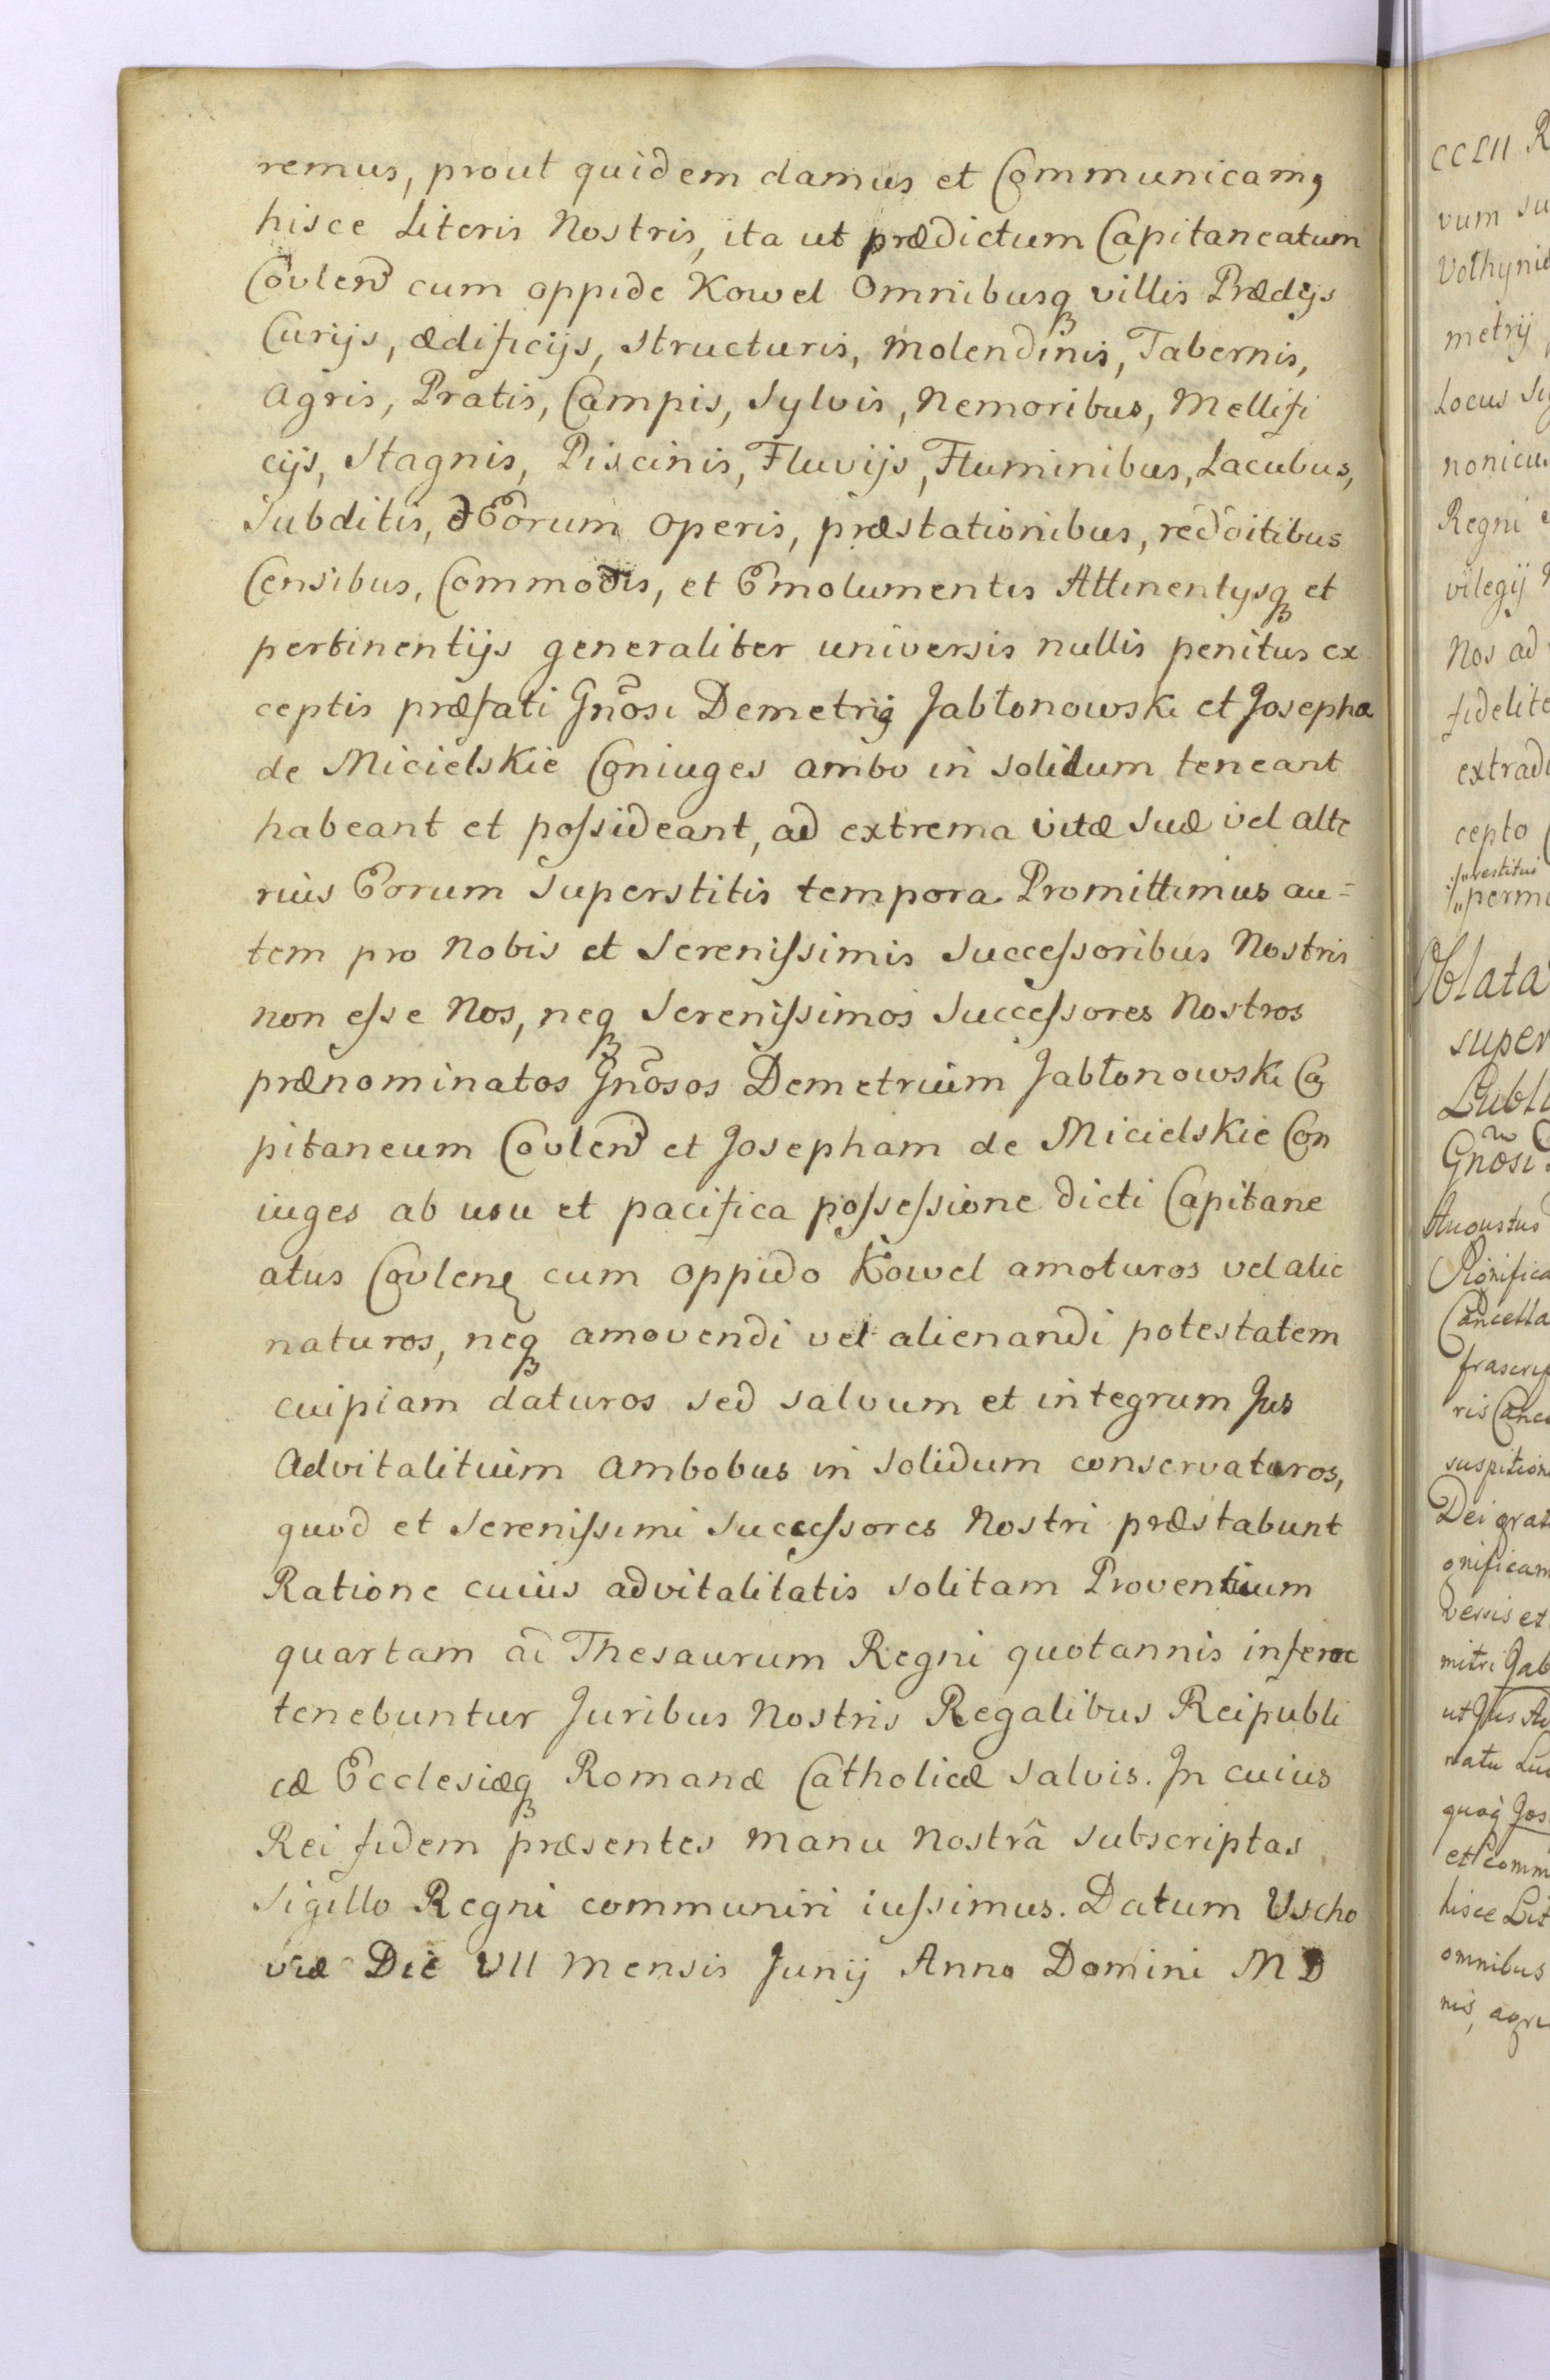 remus, prout quidem damus et Communicamꝰ
hisce Literis Nostris, ita ut prædictum Capitaneatum
Covlen̄ cum oppide Kowel Omnibusqꝫ villis Prædijs
Curijs, ædificijs, structuris, Molendinis, Tabernis,
Agris, Pratis, Campis, Sylvis, Nemoribus, Mellifi
cijs, Stagnis, Piscinis, Fluvijs, Fluminibus, Lacubus,
Subditis, Eorum operis, præstationibus, redditibus
Censibus, Commodis, et Emolumentis Attinentysqꝫ et
pertinentijs generaliter universis nullis penitus ex
ceptis præfati Gnõsi Demetrig Jabłonowski et Josepha
de Micielskie Coniuges ambo in solidum teneant
habeant et possideant, ad extrema vitæ suæ vel alte
rius Eorum superstitis tempora. Promittimus au=
tem pro Nobis et Serenissimis Successoribus Nostris
non esse Nos, neqꝫ Serenissimos Successores Nostros
prænominatos Gnõsos Demetrium Jabłonowski Ca
pitaneum Covlen̄ et Josepham de Micielskie Con
iuges ab usu et pacifica possessione dicti Capitane
atus Covlenȩ cum oppido Kowel amoturos vel alie
naturos, neqꝫ amovendi vel alienandi potestatem
cuipiam daturos sed salvum et integrum Jus
Advitalitium ambobus in solidum conservaturos,
quod et Serenissimi Successores Nostri præstabunt
Ratione cuius advitalitatis solitam Proventuum
quartam ad Thesaurum Regni quotannis inferre
tenebuntur Juribus Nostris Regalibus Reipubli
cæ Ecclesiæqꝫ Romanæ Catholicæ salvis. In cuius
Rei fidem præsentes manu Nostrâ subscriptas
Sigillo Regni communiri iussimus. Datum Vscho
viæ Die VII Mensis Junij Anno Domini MD
CCLII
vum su
Volhynia
metrij
Locus Sig
nonicu
Regni
vilegij
Nos ad
fidelite
extradi
cepto
restitui
permi
Oblata
super
Lubli
Gnõsi
Augustus
Significa
Cancella
frascrip
ris Cance
suspition
Dei grat
gnificam
versis et
mitri Jab
ut Jus Av
natu Luc
quoq Jos
et Comm
hisce Lit
omnibus
nis, agri